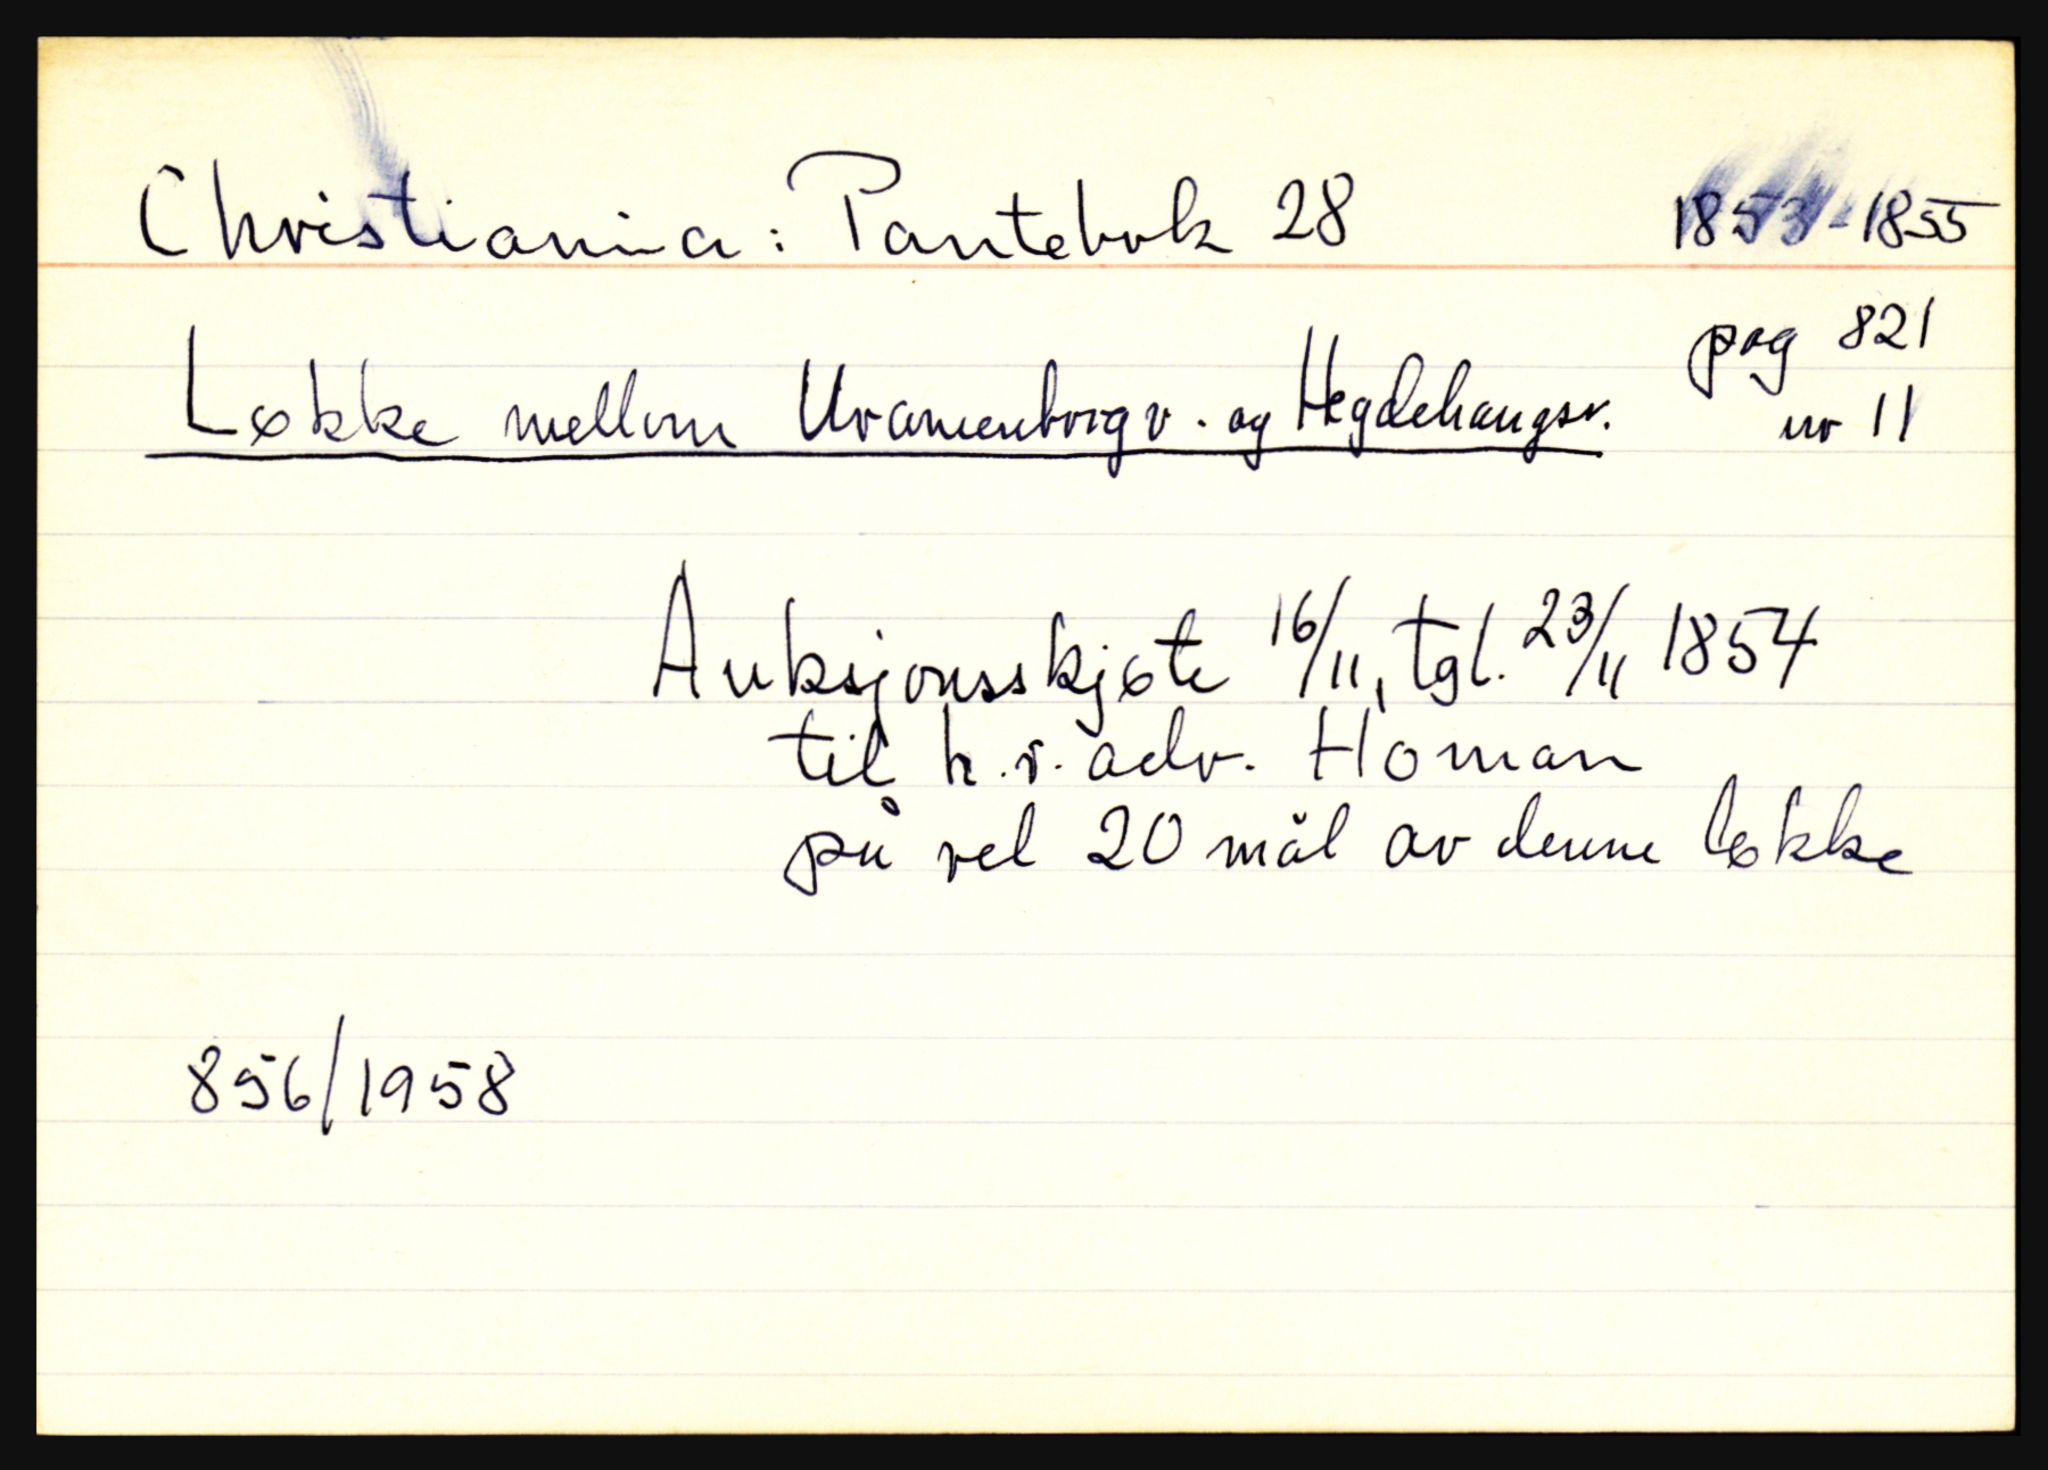 Christiania: Pantebok 28 1853-1855
pag 821
Løkke mellom Uranienborgv. og Hegdehaugsv. nr 11
Auksjonsskjøte 16/11, tgl. 23/11 1854
til h.r. adv. Homan
på vel 20 mål av denne løkke
856/1958